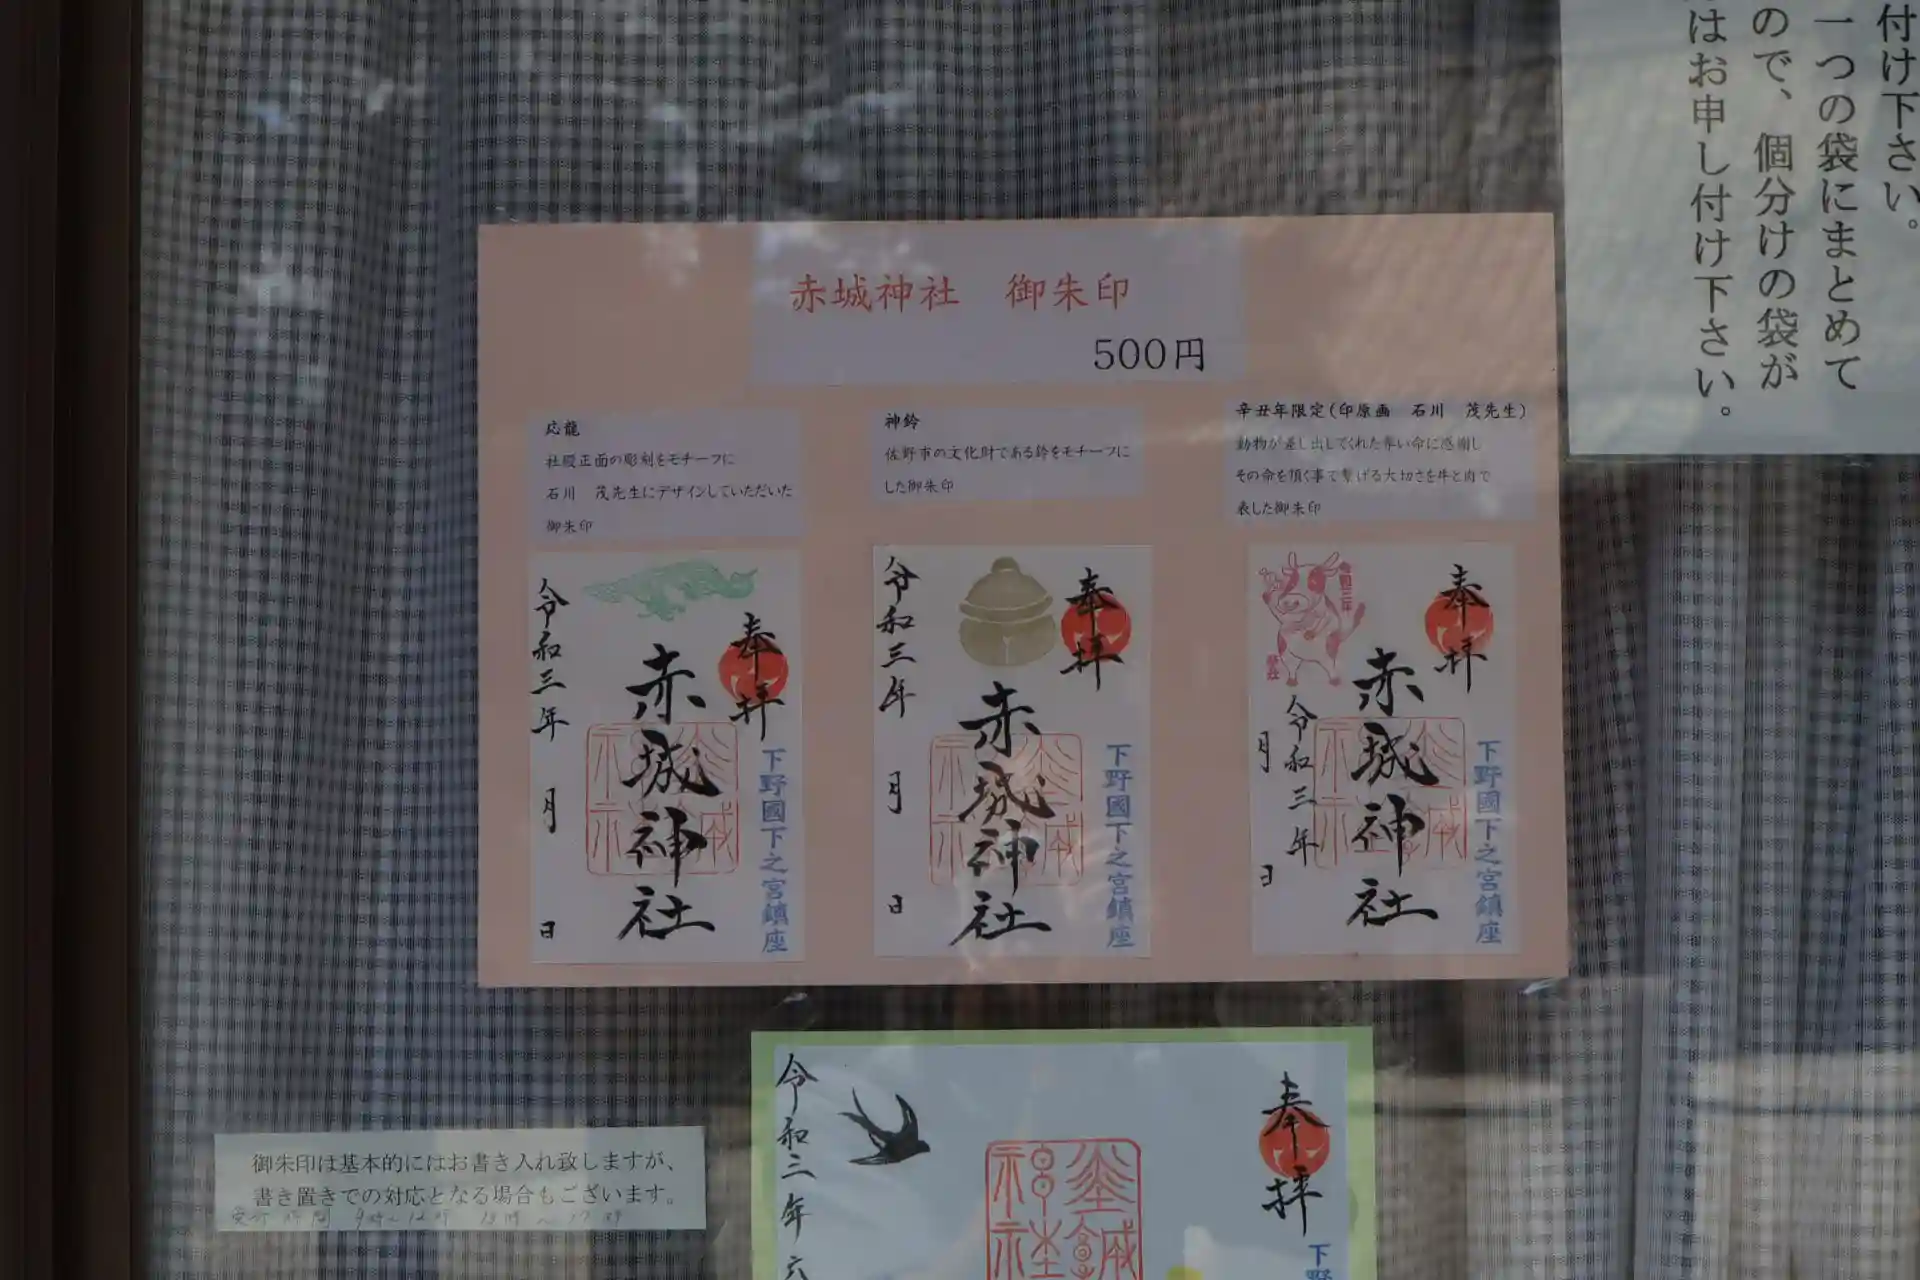 付け下さい。
一つの袋にまとめて
ので、個分けの袋が
はお申し付け下さい。
赤城神社　御朱印
500円
応龍
社殿正面の彫刻をモチーフに
石川　茂先生にデザインしていただいた
御朱印
神鈴
佐野市の文化財である鈴をモチーフに
した御朱印
辛丑年限定(印原画　石川　茂先生)
動物が差し出してくれた尊い命に感謝し
その命を頂く事で繋げる大切さを牛と肉で
表した御朱印
奉拝
下野國下之宮鎮座
赤城神社
令和三年　月　日
奉拝
下野國下之宮鎮座
赤城神社
令和三年　月　日
奉拝
下野國下之宮鎮座
赤城神社
令和三年
月　日
令和三年
奉拝
下野
令和三年六
御朱印は基本的にはお書き入れ致しますが、
書き置きでの対応となる場合もございます。
受付時間　9時〜12時　13時〜17時